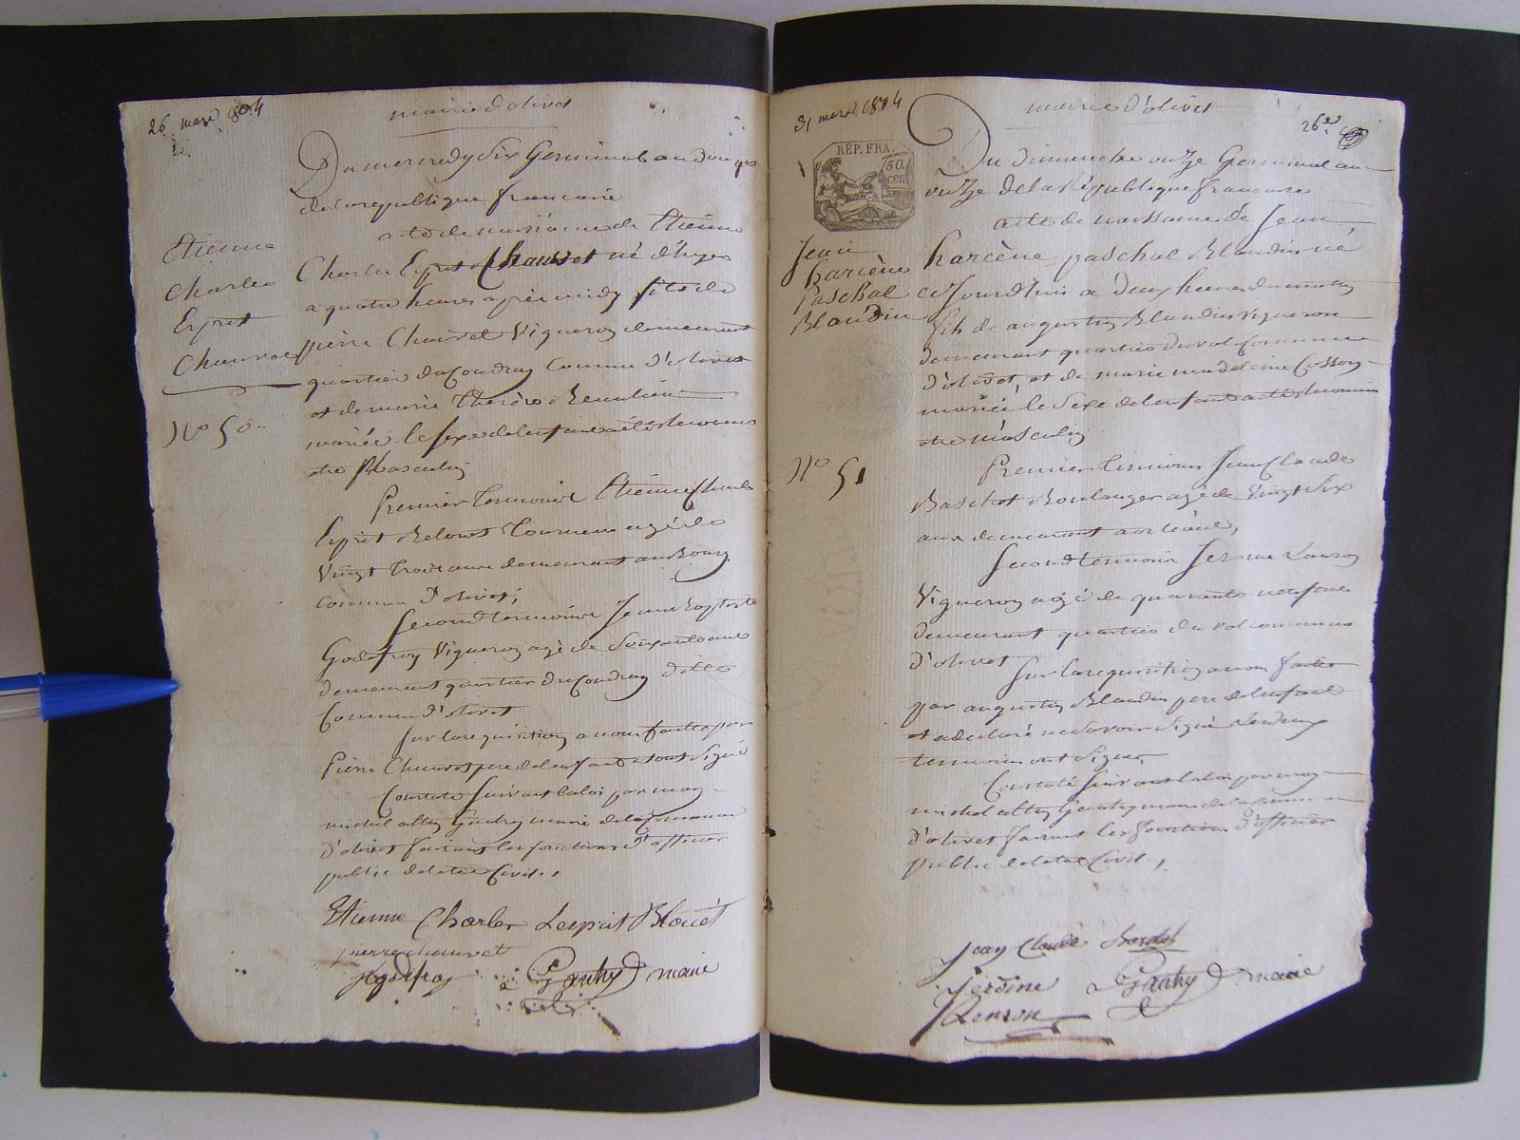 26 mars 1804
mairie d'olivet
Du mercredy Six Germinal an douze
de la republique francaise
acte de naissance de Etienne
Charles Esprit Chauvet né d'hyer
a quatre heures après midy fils de
pierre Chauvet Vigneron demeurant
quartier du Coudray Commune d'olivet
et de marie Therèse Beaulieu
mariée le sexe de lenfant a été reconnu
etre Masculin
Premier temoin Etienne Charle
lesprit Blouet Tourneur agé de
Vingt trois ans demeurant au Bourg
Commune d'olivet;
Second temoin Jean Baptiste
Godefroy Vigneron agé de Soixante ans
demeurant quartier du Coudray ditte
Commune d'olivet
Sur la requisition a nous faitte par
Pierre Chauvet pere de lenfant et ont Signé
Constaté Suivant la loi par moy
michel alby Gauthy maire de la Commune
d'olivet faisant les fonctions d'officier
public de letat Civil,
Etienne
Charles
Esprit
Chauvet
No 50
Etienne Charles Lesprit Blouet
pierre chauvet
Gauthy maire
31 mars 1804
mairie d'olivet
26
REP. FRA.
50
CEN.
Du dimanche onze Germinal an
onze de la République francaise
acte de naissance de Jean
harcène paschal Blandin né
cejourdhui a deux heures du matin
fils de augustin Blandin Vigneron
demeurant quartier du val Commune
d'olivet, et de marie madeleine Cosson
mariée le Sexe de lenfant a été reconnu
etre masculin
Premier temoin Jean Claude
Boulanger agé de Vingt Six
ans demeurant a orleans,
Second temoin Jerome
Vigneron agé de quarante neuf ans
demeurant quartier du val commune
d'olivet
Sur la requisition a nous faitte
par augustin Blandin pere de lenfant
et a declaré ne savoir Signé les deux
temoins ont Signé,
Constaté Suivant la loi par moy
michel alby Gauthy maire de la Commune
d'olivet faisant les fonctions d'officier
public de letat Civil,
Jean
harcène
Paschal
Blandin
No 51
Jean Claude
Jerôme
Gauthy maire